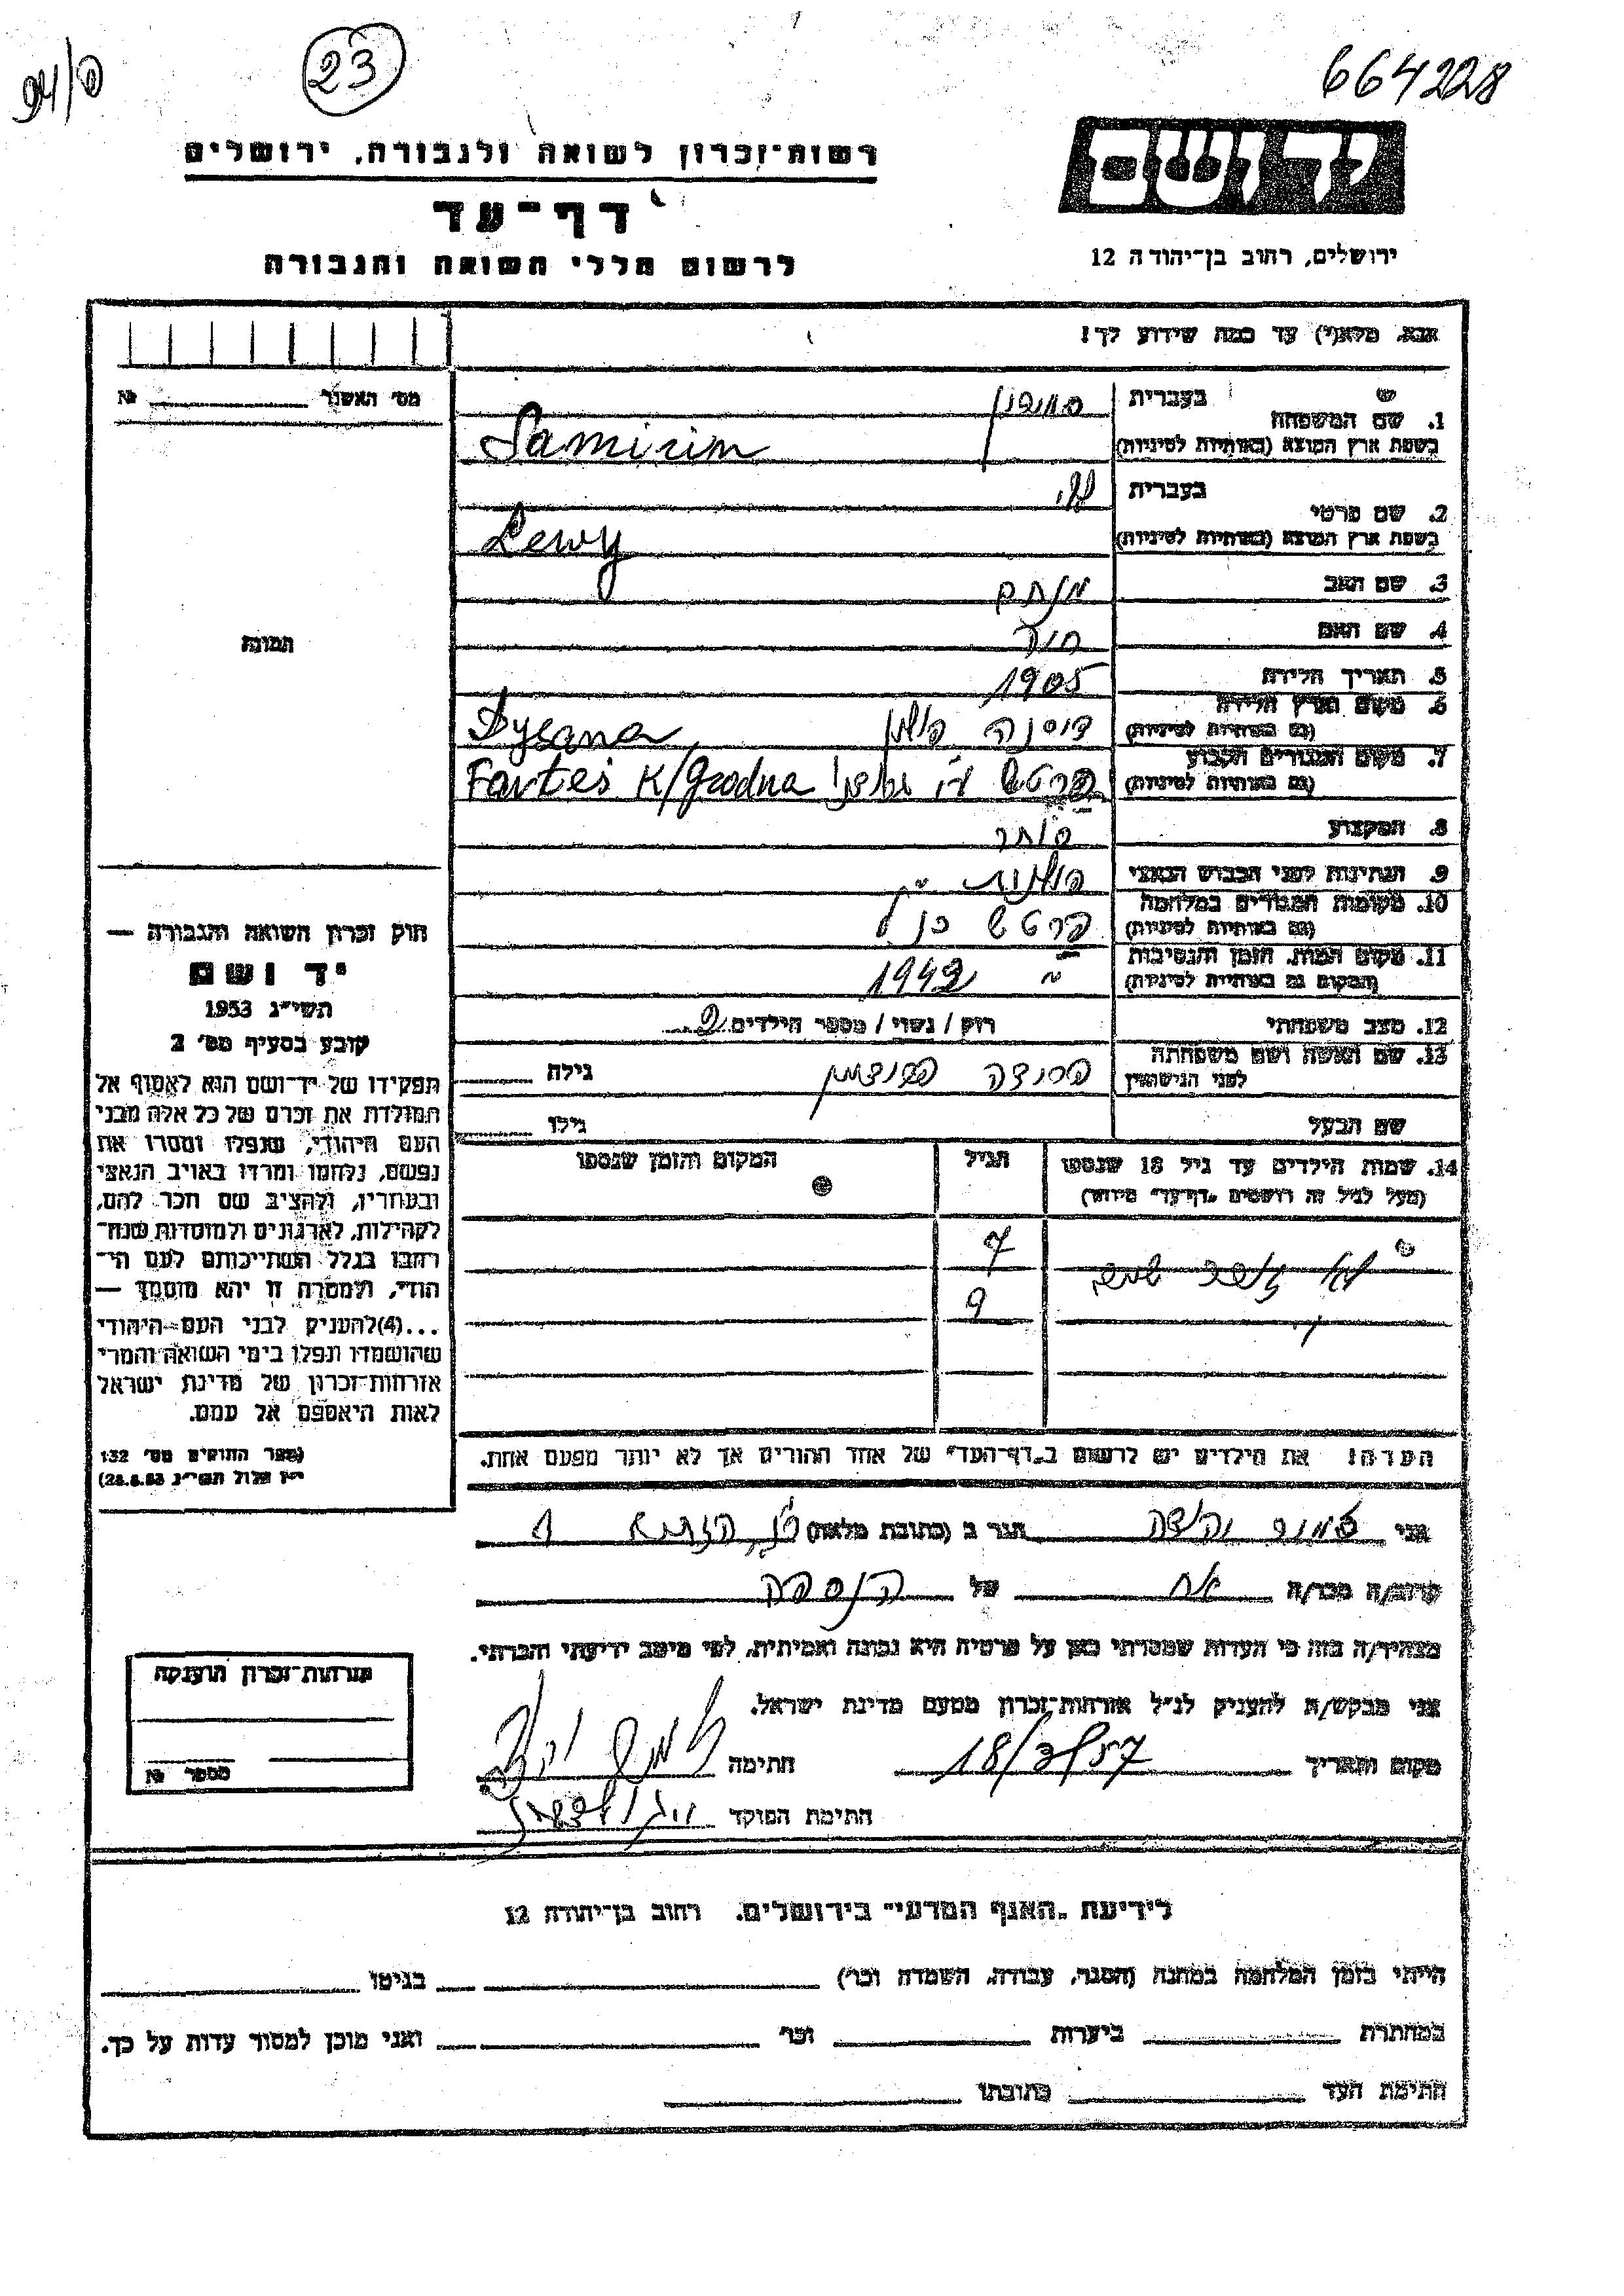 23
664228
רשות־זכרון לשואה ולגבורה, ירושלים
דף־עד
לרשום חללי השואה והגבורה
יד ושם
ירושלים, רחוב בן־יהודה 12
אנא, מלא(י) עד כמה שידוע לך!
מס' האשנר №
1. שם המשפחה
בעברית
בשפת ארץ המוצא (באותיות לטיניות) Samirim
2. שם פרטי
בעברית לוי
בשפת ארץ המוצא (באותיות לטיניות) Lewy
3. שם האב מנחם
4. שם האם חיה
5. תאריך הלידה 1905
6. מקום וארץ הלידה
(גם באותיות לטיניות) דיסנה פולין Dysana
7. מקום המגורים הקבוע
(גם באותיות לטיניות) Fartes K/Grodna
8. המקצוע סוחר
9. הנתינות לפני הכבוש הנאצי פולנית
10. מקומות המגורים במלחמה
(גם באותיות לטיניות)
11. מקום המות, הזמן והנסיבות
(המקום גם באותיות לטיניות) 1942
12. מצב משפחתי רוק / נשוי / מספר הילדים 2
13. שם האשה ושם משפחתה
לפני הנישואין גילה
שם הבעל גילו
14. שמות הילדים עד גיל 18 שנספו
(מעל לגיל זה רושמים „דף־עד" מיוחד)
הגיל
המקום והזמן שנספו
7
9
הערה: את הילדים יש לרשום ב„דף־העד" של אחד ההורים אך לא יותר מפעם אחת.
תמונה
חוק זכרון השואה והגבורה —
יד ושם
תשי"ג 1953
קובע בסעיף מס' 2
תפקידו של יד־ושם הוא לאסוף אל
המולדת את זכרם של כל אלה מבני
העם היהודי, שנפלו ומסרו את
נפשם, נלחמו ומרדו באויב הנאצי
ובעוזריו, ולהציב שם וזכר להם,
לקהילות, לארגונים ולמוסדות שנח־
רבו בגלל השתייכותם לעם הי־
הודי, ולמטרה זו יהא מוסמך —
...(4)להעניק לבני העם היהודי
שהושמדו ונפלו בימי השואה והמרי
אזרחות־זכרון של מדינת ישראל
לאות היאספם אל עמם.
(ספר החוקים מס' 132
י"ז אלול תשי"ג 28.8.53)
אני יהודה הגר ב (כתובת מלאה)
קרוב/ה מכר/ה אח של הנספה
מצהיר/ה בזה כי העדות שמסרתי כאן על פרטיה היא נכונה ואמיתית, לפי מיטב ידיעתי והכרתי.
אני מבקש/ת להעניק לנ"ל אזרחות־זכרון מטעם מדינת ישראל.
מקום ותאריך 18/3/57 חתימה
חתימת הפוקד
אזרחות־זכרון הוענקה
מספר №
לידיעת „האגף המדעי" בירושלים. רחוב בן־יהודה 12
הייתי בזמן המלחמה במחנה (הסגר, עבודה, השמדה וכו') בגיטו
במחתרת ביערות וכו' ואני מוכן למסור עדות על כך.
חתימת העד כתובתו